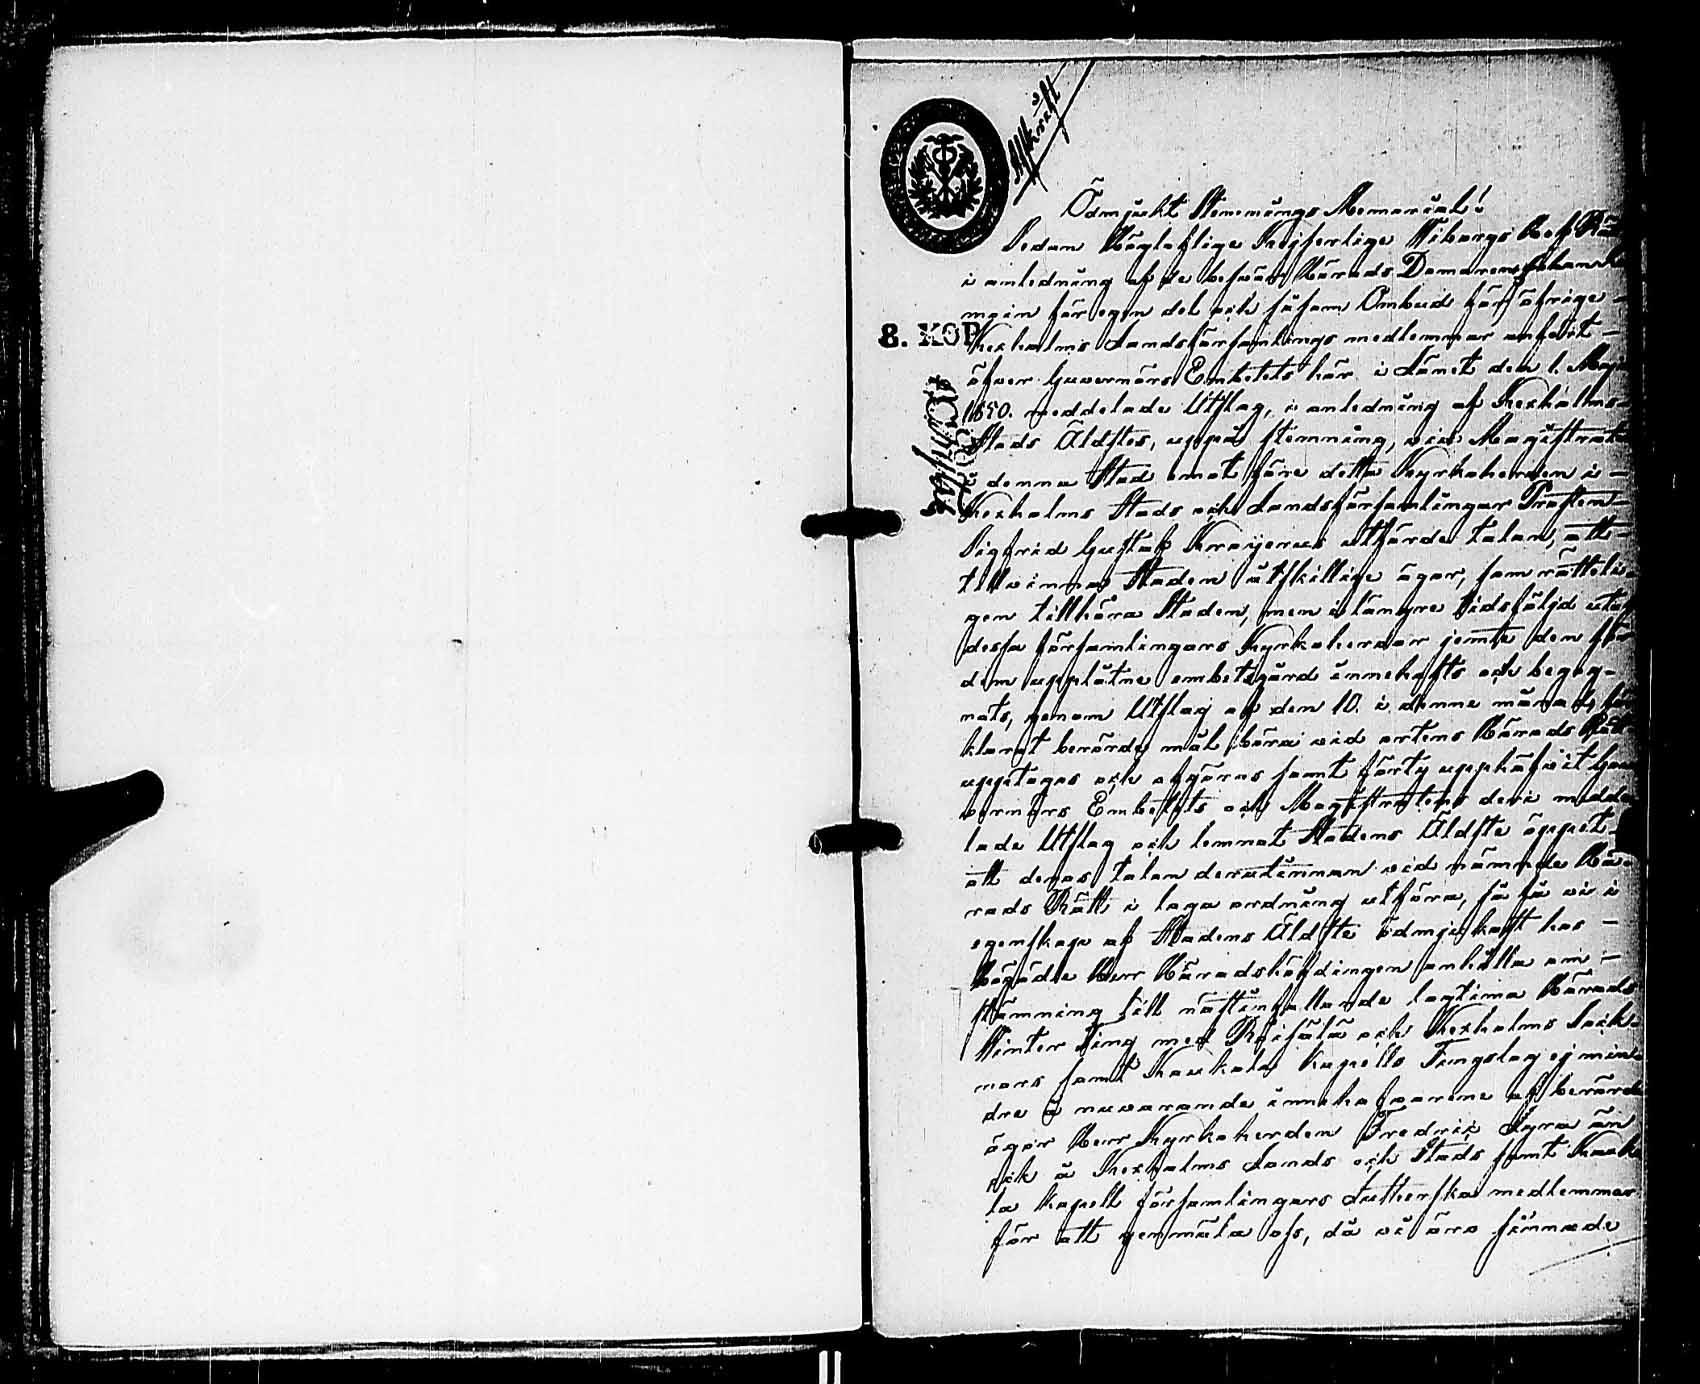 Afskrift
Ödmjukt Stemnings Memorial!
Sedan Högloflige Kejserlige Wiborgs Hof Rätt
i anledning af de besvär Härads Domaren
för egen del och såsom Ombud för öfrige
8. KOP.
Kexholms Landsförsamlings medlemmar anfört
öfver Guvernörs Embetets här i Länet den 1. Maji
1850. meddelade Utslag, i anledning af Kexholms
Stads Äldstes, uppå stemning, vid Magistraten
i denna Stad emot före detta Kyrkoherden i
Kexholms Stads och Landsförsamlingar Prosten
Sigfrid Gustaf Krogerus utförde talan, att
tillvinna Staden åtskillige ägor, som rätteli-
gen tillhöra Staden, men i längre tidsföljd utaf
dessa församlingars Kyrkoherdar jemte den för
dem upplåtne embetsgård innehafts och begag-
nats, genom Utslag af den 10. i denne månad, för-
klarat berörde mål böra vid ortens Härads Rätt
upptagas och afgöras samt förty upphäfvit Gu-
vernörs Embetets och Magistratens deri medde-
lade Utslag och lemnat Stadens Äldste öppet
att deras talan derutinnan vid nämnde Hä-
rads Rätt i laga ordning utföra, så få vi i
egenskap af Stadens Äldste ödmjukast hos
Högädle Herr Häradshöfdingen anhålla om
stämning till nästinfallande lagtima Härads
Winter Ting med Räisälä och Kexholms Sock-
nars samt Kaukola Kapells Tingslag ej min-
dre å nuvarande innehafvarene af berörde
ägor Herr Kyrkoherden Fredric Lyra än
ock å Kexholms Lands och Stads samt Kauko-
la Kapell församlingars Lutherska medlemmar
för att genmäla oss, då vi äro sinnade